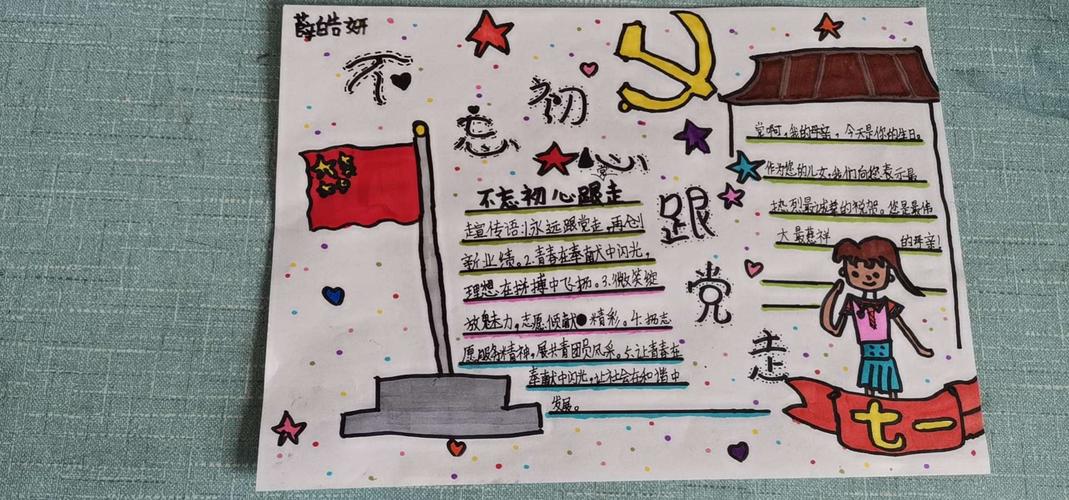 薛皓妍
不忘初心
跟党走
不忘初心跟走
走宣传语:1永远跟党走,再创
新业绩。2.青春在奉献中闪光,
理想在拼搏中飞扬。3.微笑绽
放魅力,志愿倾献 精彩。4.扬志
愿服务精神,展共青团员风采。5.让青春在
奉献中闪光,让社会在和谐中
发展。
党啊,我的母亲,今天是你的生日。
作为您的儿女,我们向您表示最
热烈最诚挚的祝贺。您是最伟
大最慈祥 的母亲!
七一